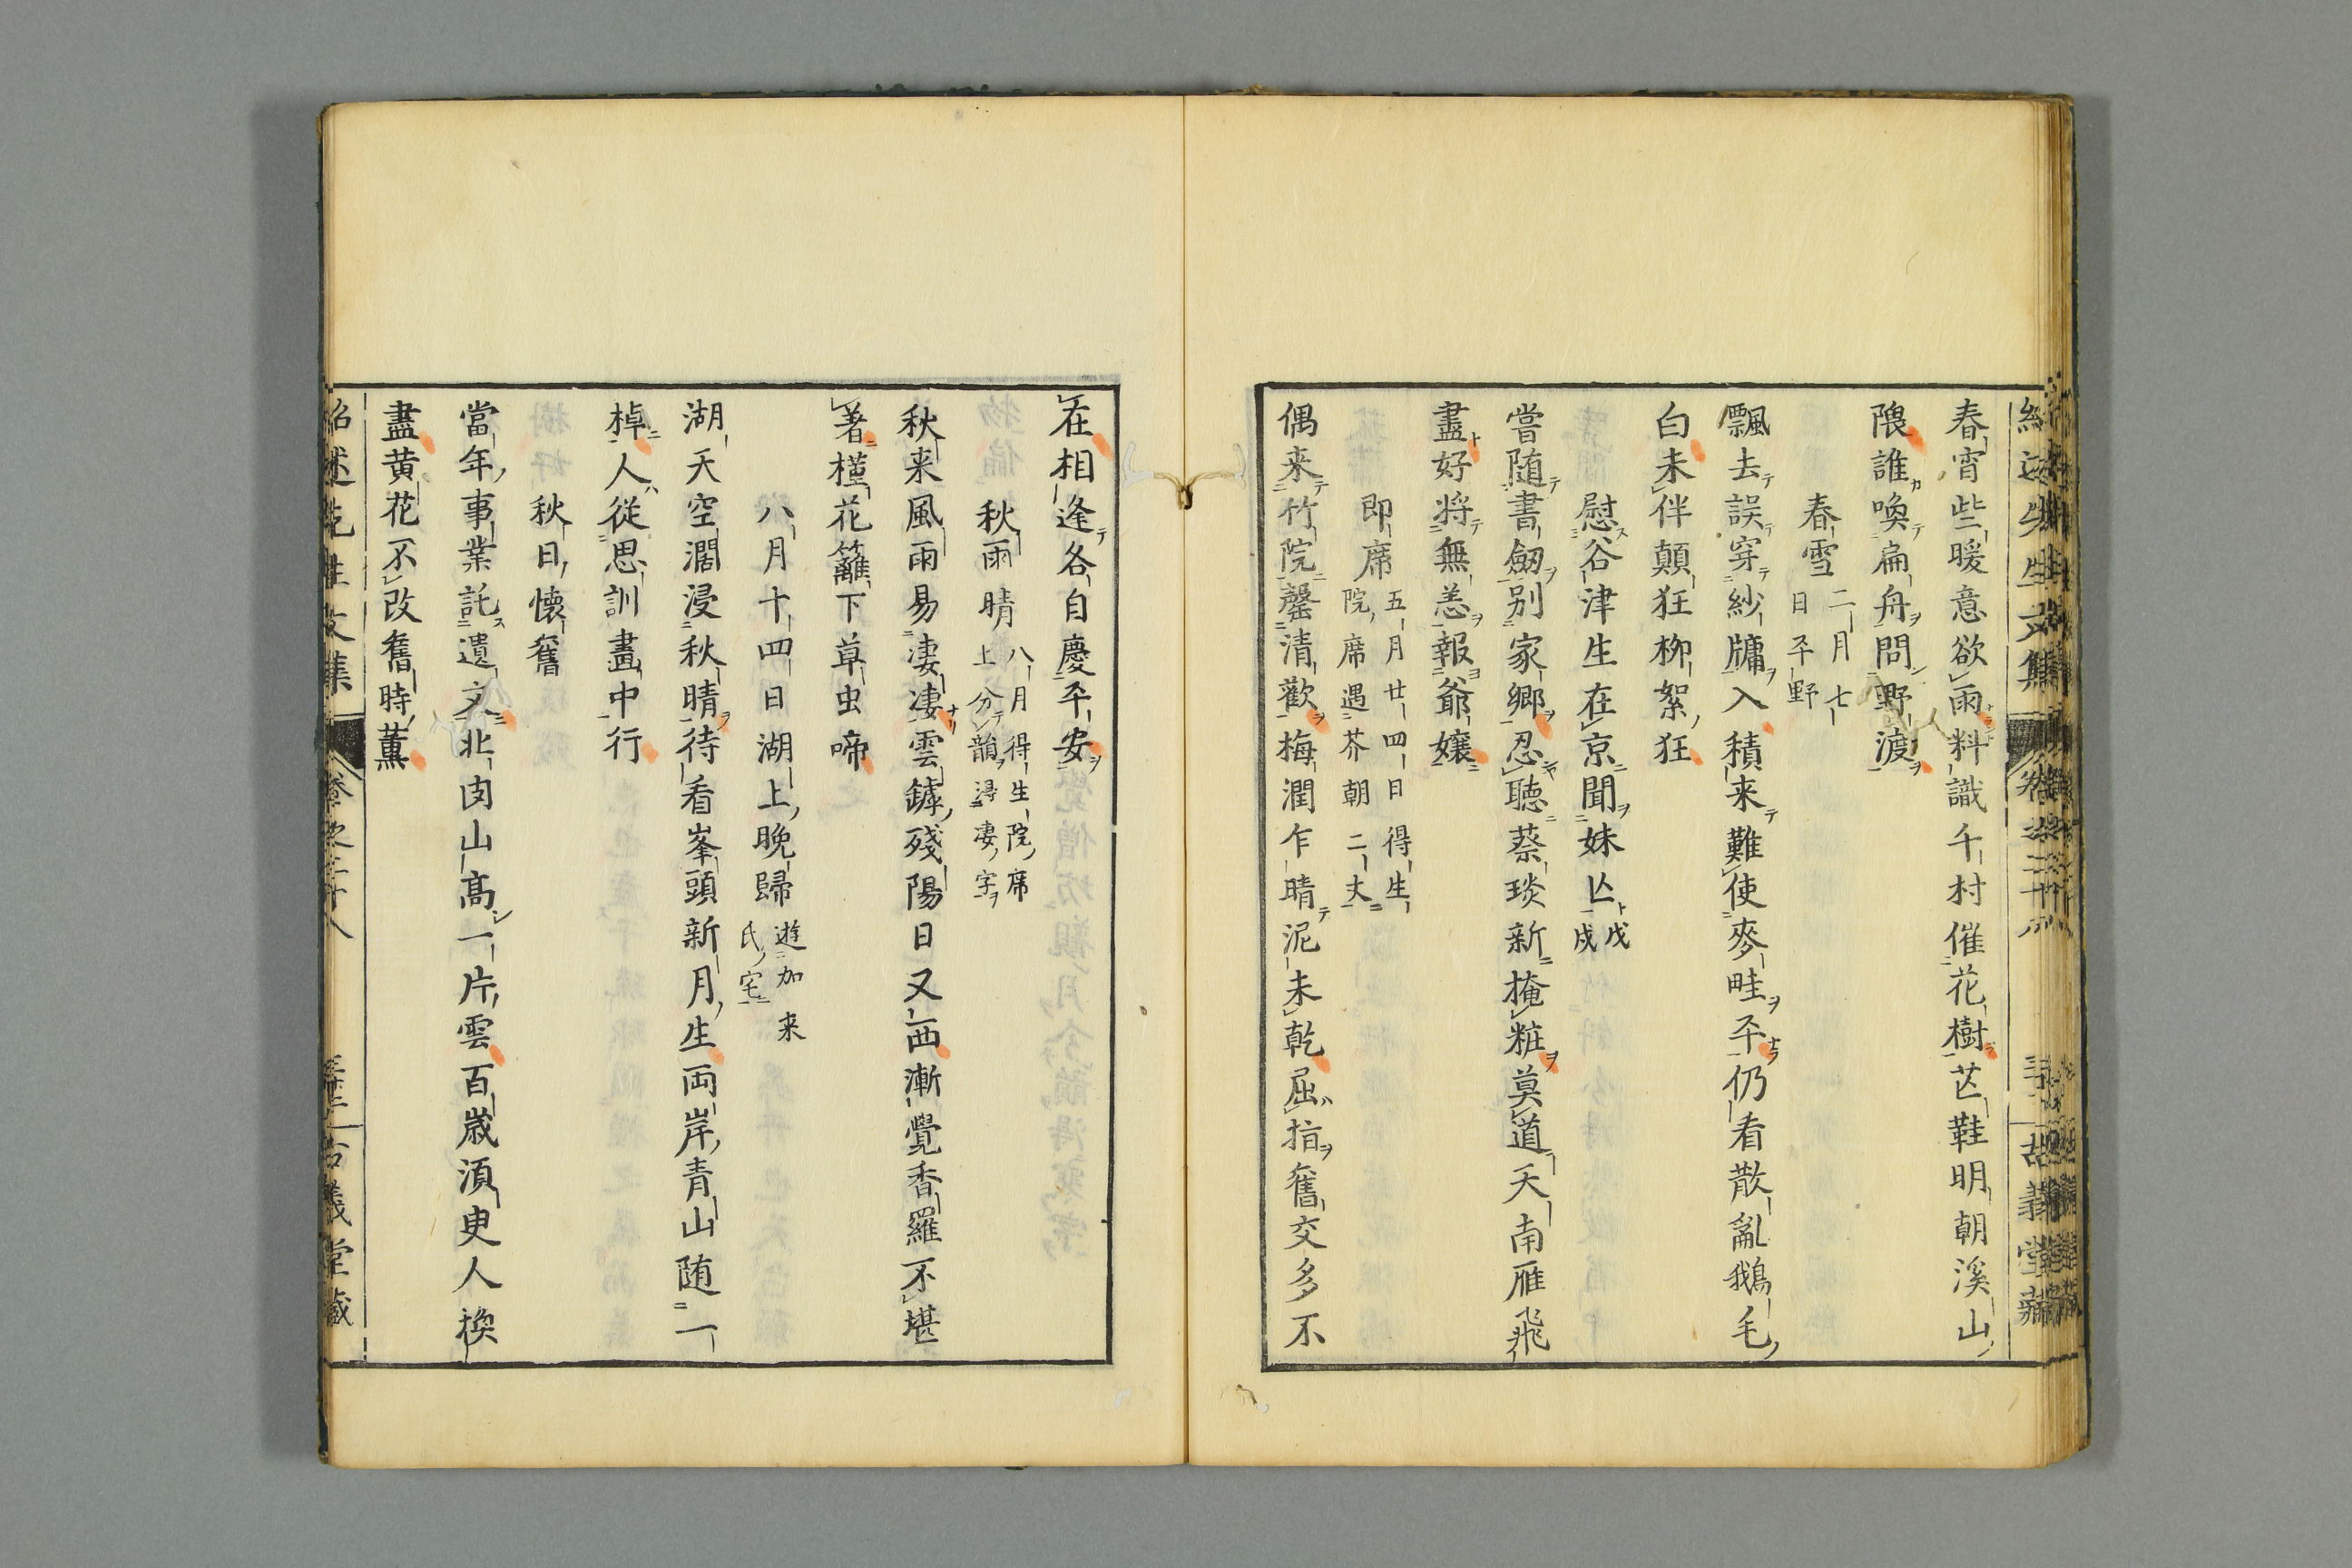 春宵些暖意欲雨料識千村催花樹芒鞋明朝溪山
隈誰喚扁舟問野渡
春雪 二月七日平野
飄去誤穿紗牗入積来難使麥畦平仍看散亂鵝毛
白未伴顛狂柳絮狂
慰谷津生在京聞妹亡 戊戌
嘗随書劔别家郷忍聴蔡琰新掩粧莫道天南雁飛
盡好将無恙報爺嬢
即席 五月廿四日得生院席遇芥朝二丈
偶来竹院罄清歡梅潤乍晴泥未乾屈指舊交多不
在相逢各自慶平安
秋雨晴 八月得生院席上分韻得凄字
秋来風雨易凄凄雲罅殘陽日又西漸覺香羅不堪
著槿花籬下草虫啼
八月十四日湖上晩歸 遊加来氏宅
湖天空濶浸秋晴待看峯頭新月生両岸青山随一
棹人從思訓畫中行
秋日懐舊
當年事業託遺文北囱山高一片雲百歳須臾人換
盡黄花不改舊時薫
紹述先生文集 卷之三十八 古義堂藏